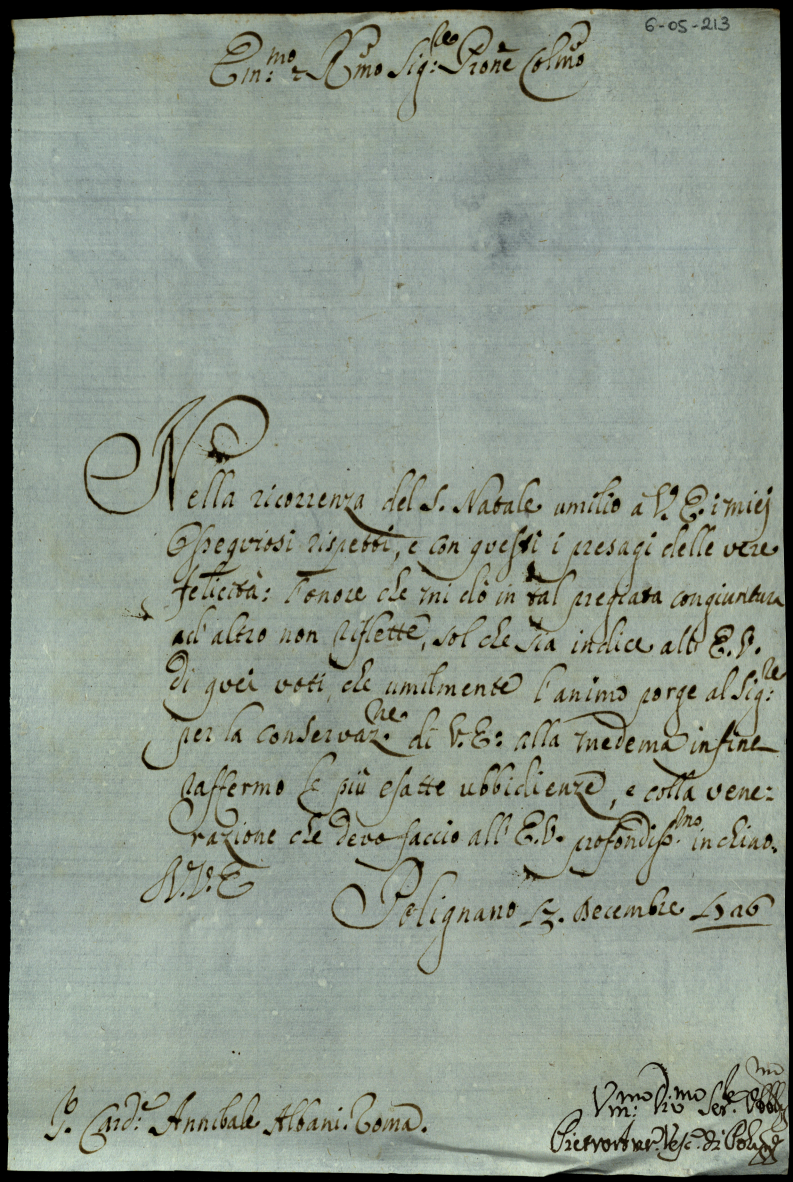 6-05-213
Em:mo e Rmo Sig:re Prone Colmo
Nella ricorrenza del S. Natale umilio à V. E. i miej
Ossequiosi rispetti, e con questi i presagi delle vere
felicità: l'onore che mi dò in tal pregiata congiuntura
ad' altro non riflette, sol che sia indice all' E. V.
di quei voti, che umilmente l'animo porge al Sig:re
per la conservaz:ne di V. E: alla medema in fine
raffermo le più esatte ubbidienze, e colla vene:
razione che devo faccio all' E. V. profondiss:mo inchino.
Di V. E.
Polignano 13. Decembre 1726
Sr. Card:e Annibale Albani. Roma.
Um:mo Di:mo Ser:e Obblmo
Pietro Ant: Vesc:o di Polig:o